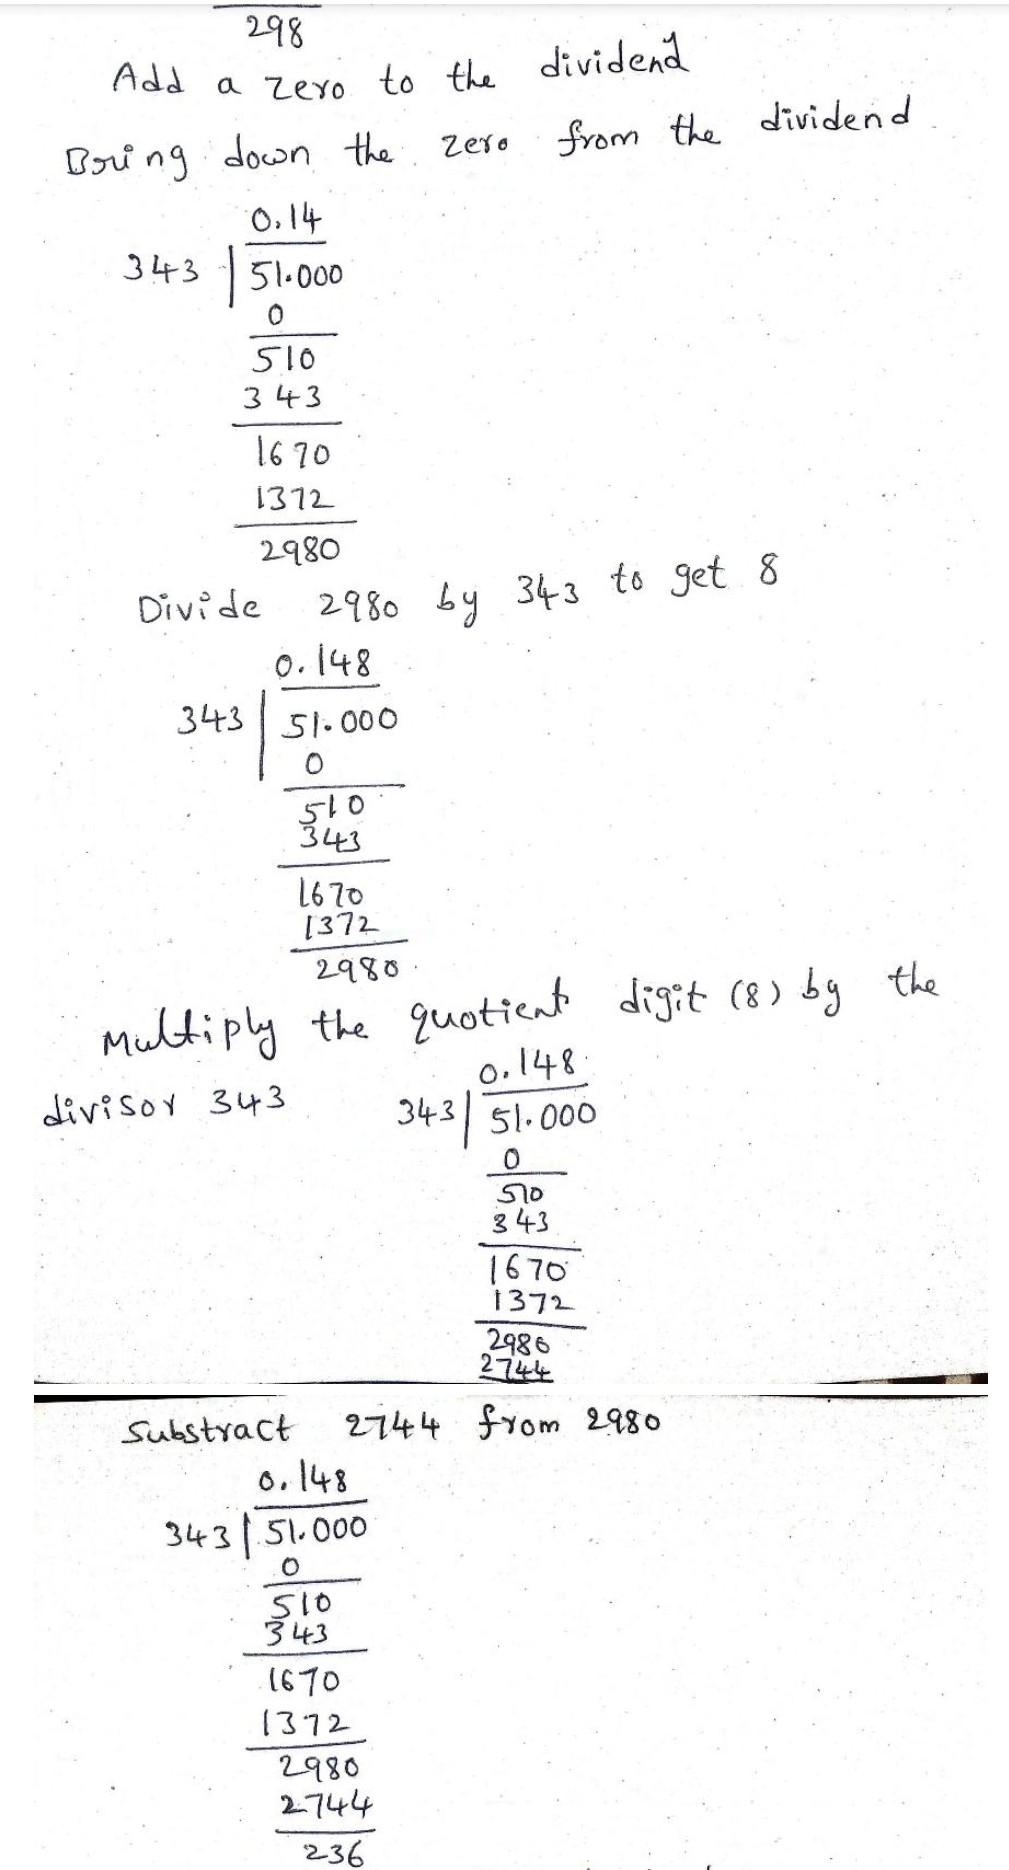 298
Add a zero to the dividend
Bring down the zero from the dividend
0.14
343 | 51.000
0
510
343
1670
1372
2980
Divide 2980 by 343 to get 8
0.148
343 | 51.000
0
510
343
1670
1372
2980
Multiply the quotient digit (8) by the
divisor 343
0.148
343 | 51.000
0
510
343
1670
1372
2980
2744
Substract 2744 from 2980
0.148
343 | 51.000
0
510
343
1670
1372
2980
2744
236